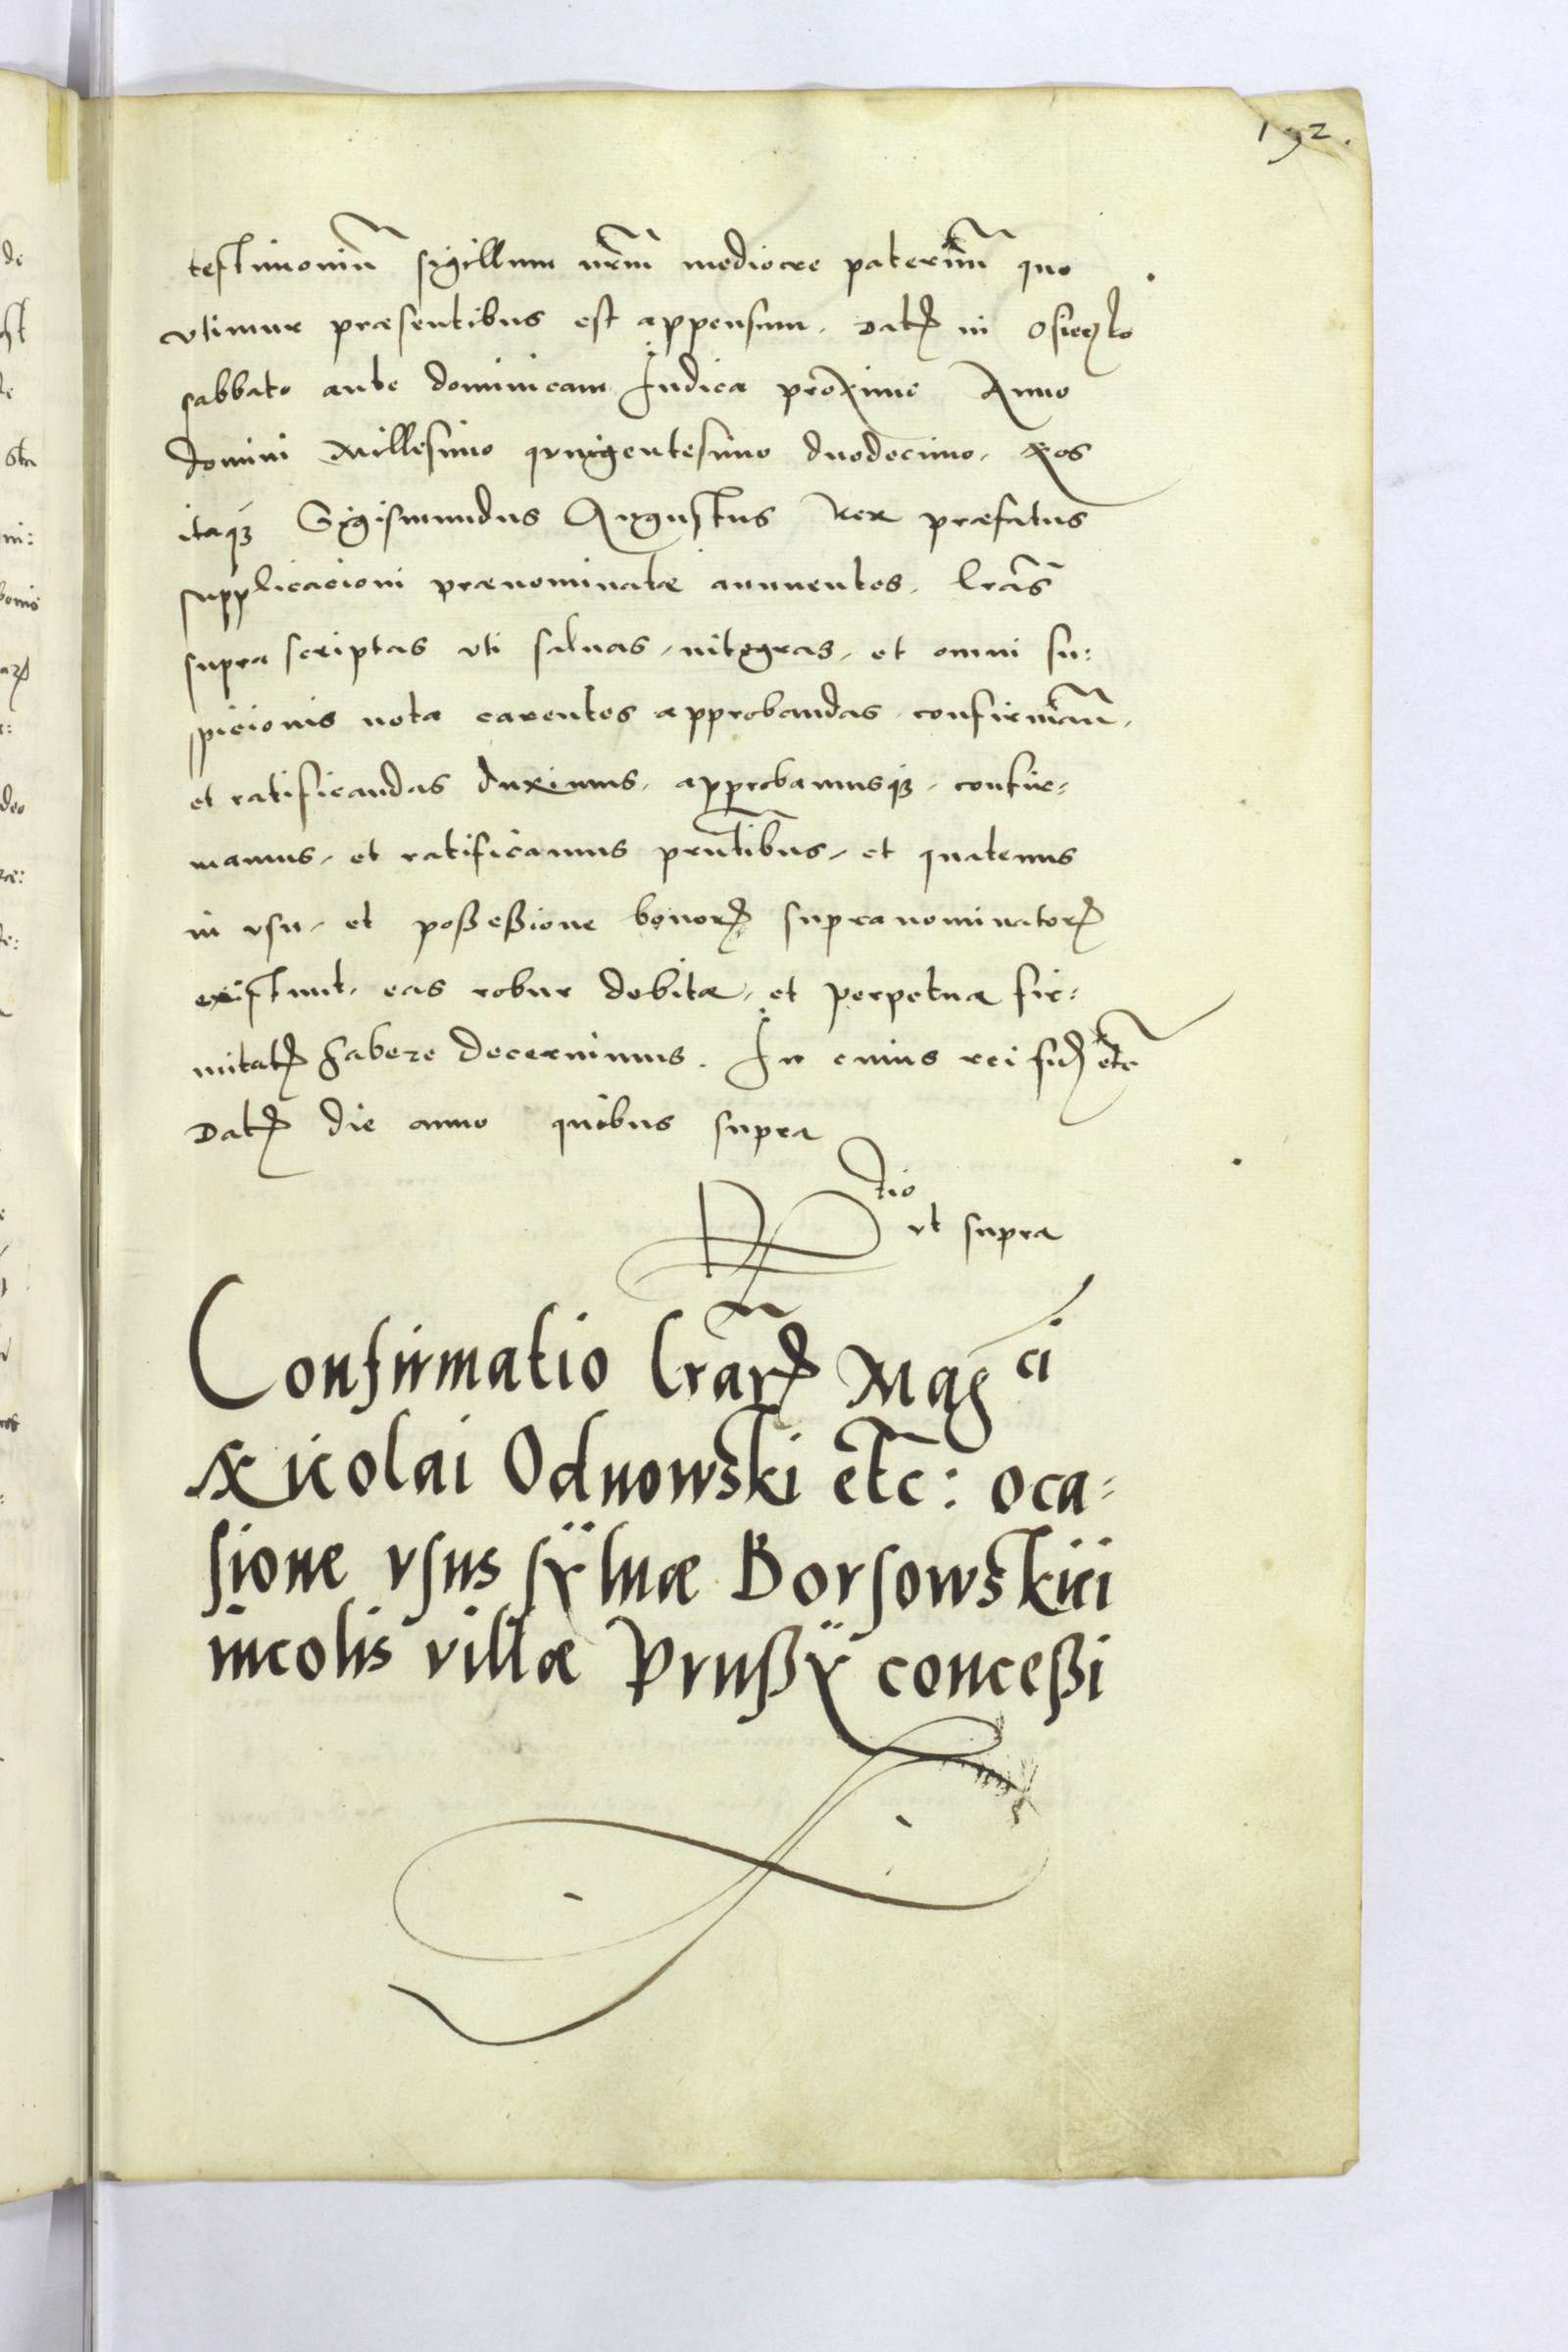 192.
testimoniũ sigillum nr̃m mediocre paternũ quo
vtimur præsentibus est appensum. Datꝭ in Osieczko
sabbato ante dominicam Iudica proxime Anno
domini Millesimo quingentesimo duodecimo. Nos
itaqꝫ Sigismundus Augustus Rex præfatus
supplicacioni prænominatæ annuentes. lr̃as
supra scriptas vti saluas, integras, et omni su:
spicionis nota carentes approbandas, confirmañ.
et ratificandas duximus, approbamusqꝫ, confir:
mamus, et ratificamus prñtibus, et quatenus
in vsu, et poßeßione bonorꝝ supranominatorꝝ
existunt. eas robur debitæ, et perpetuæ fir:
mitatꝭ habere decernimus. In cuius rei fidꝭ etc̃
Datꝭ die anno quibus supra
R tio
vt supra
Confirmatio lr̃arꝝ Magci
Nicolai Odnowski etc̃: oca:
sione vsus sÿluæ Borsowskiei
incolis villæ Prußÿ conceßi